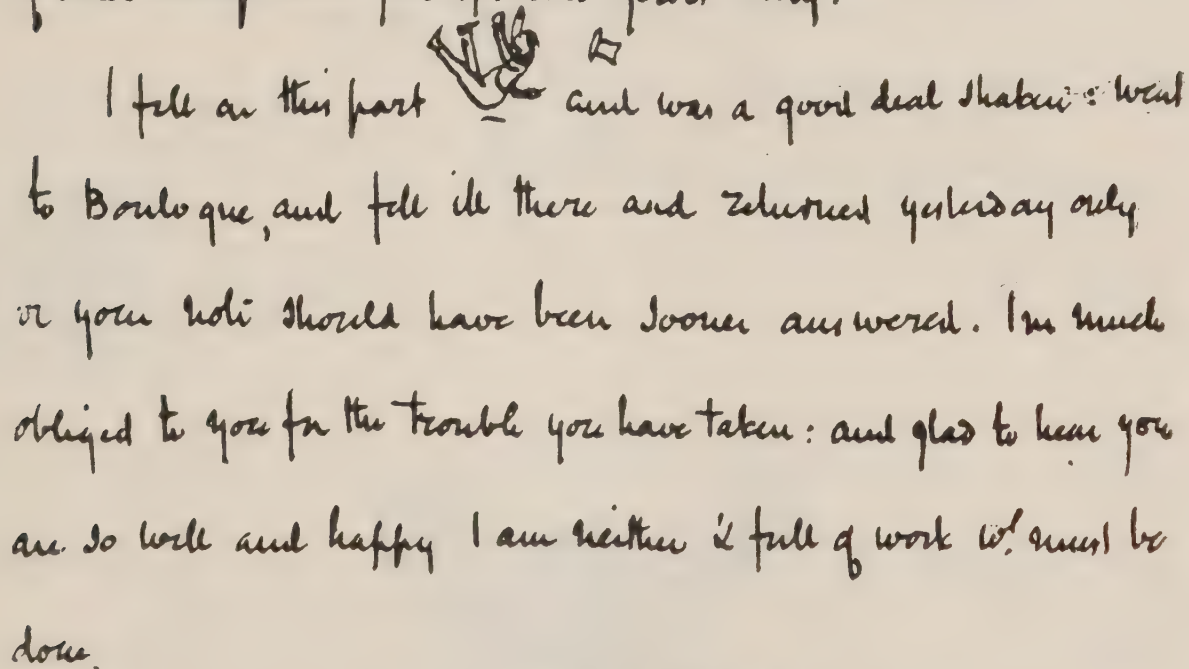 I fell on this part and was a good deal shaken: went
to Boulogne, and fell ill there and returned yesterday only
or your note should have been sooner answered. I'm much
obliged to you for the trouble you have taken: and glad to hear you
are so well and happy I am neither & full of work wh. must be
done.